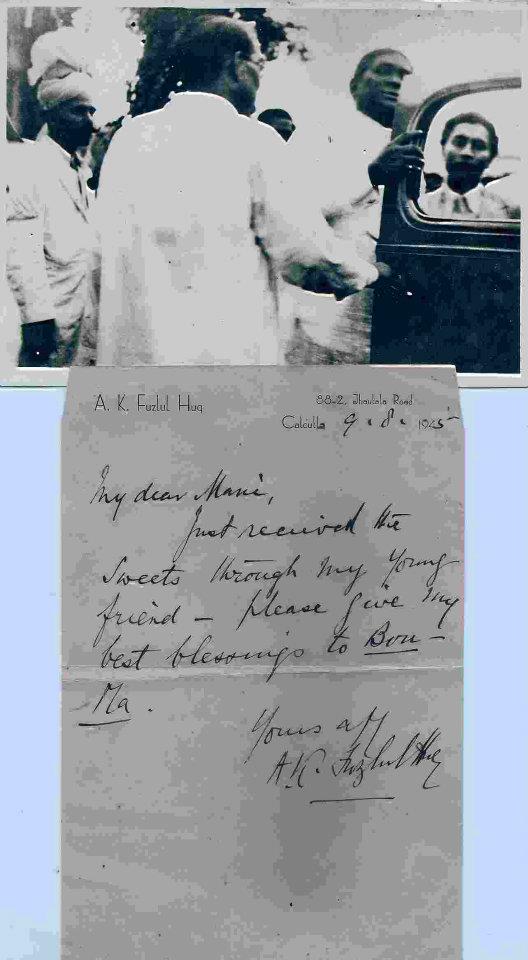 A. K. Fuzlul Huq
88-2, Jhautala Road
Calcutta 9.8.1945
My dear Mani,
Just received the
sweets through my young
friend – please give my
best blessings to Bou –
Ma.
Yours aff
A.K. Fuzlul Huq